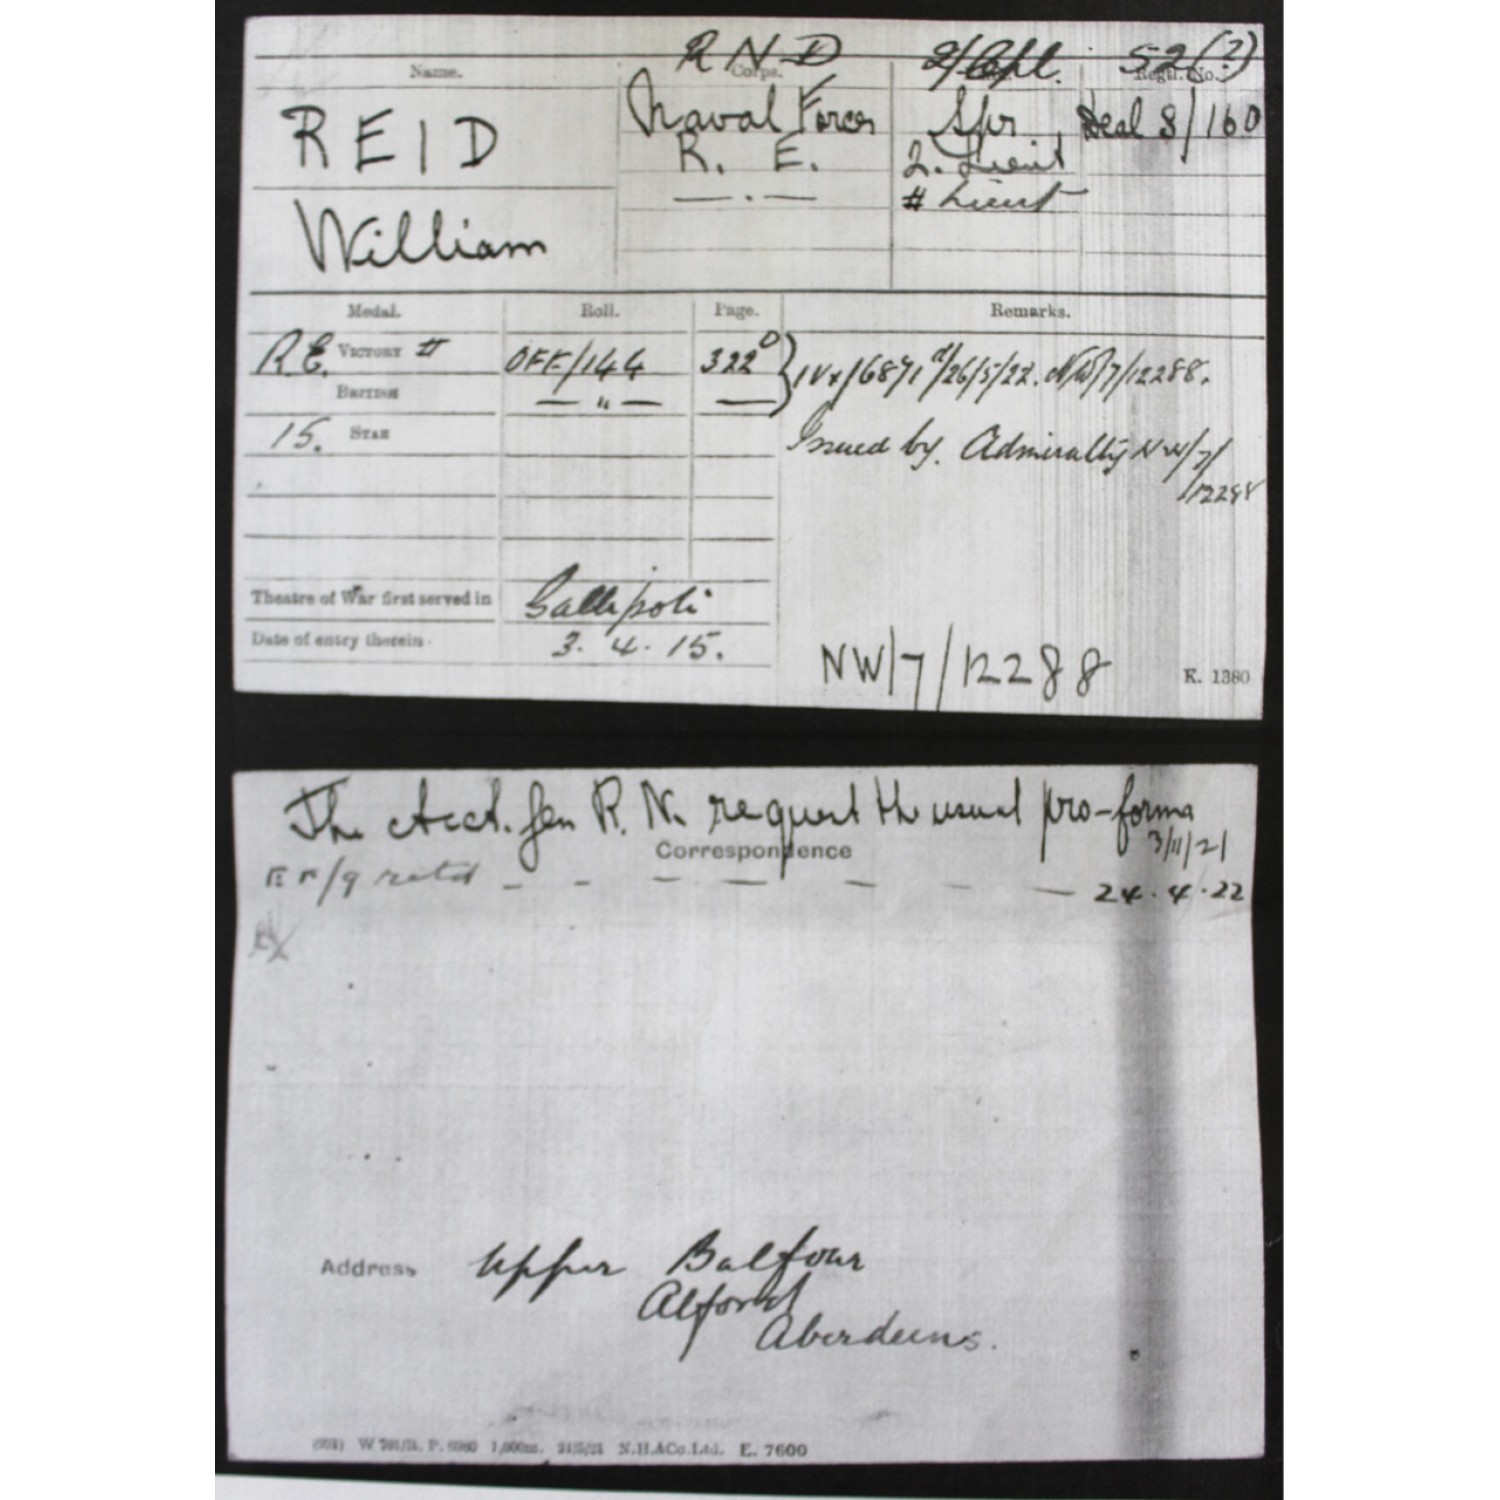 R N D 2/Cpl. 52(?)
Name. Corps. Regtl. No.
REID Naval Forces Spr Deal S/160
R. E. 2. Lieut
William — . — # Lieut
Medal. Roll. Page. Remarks.
R.E. VICTORY # OFF/144 322D } IVx/6871 d/26/5/22. NW/7/12288.
BRITISH — " — —
15. STAR Issued by. Admiralty NW/7/
12288
Theatre of War first served in Gallipoli
Date of entry therein 3. 4. 15.
NW/7/12288 K. 1380
The Acct. Gen R. N. request the usual pro-forma
Correspondence 3/11/21
retd - - - - - - - 24.4.22
Address Upper Balfour
Alford
Aberdeens.
W P. 1,000m. N.H.&Co.Ltd. E. 7600